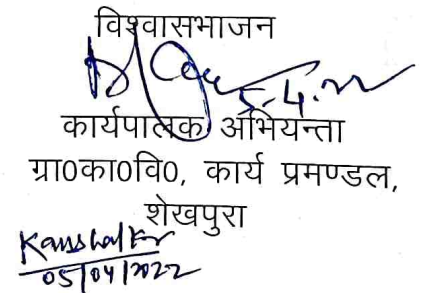 विश्वासभाजन
5-4-22
कार्यपालक अभियन्ता
ग्रा0का0वि0, कार्य प्रमण्डल,
शेखपुरा
Kaushal Kr
05/04/2022